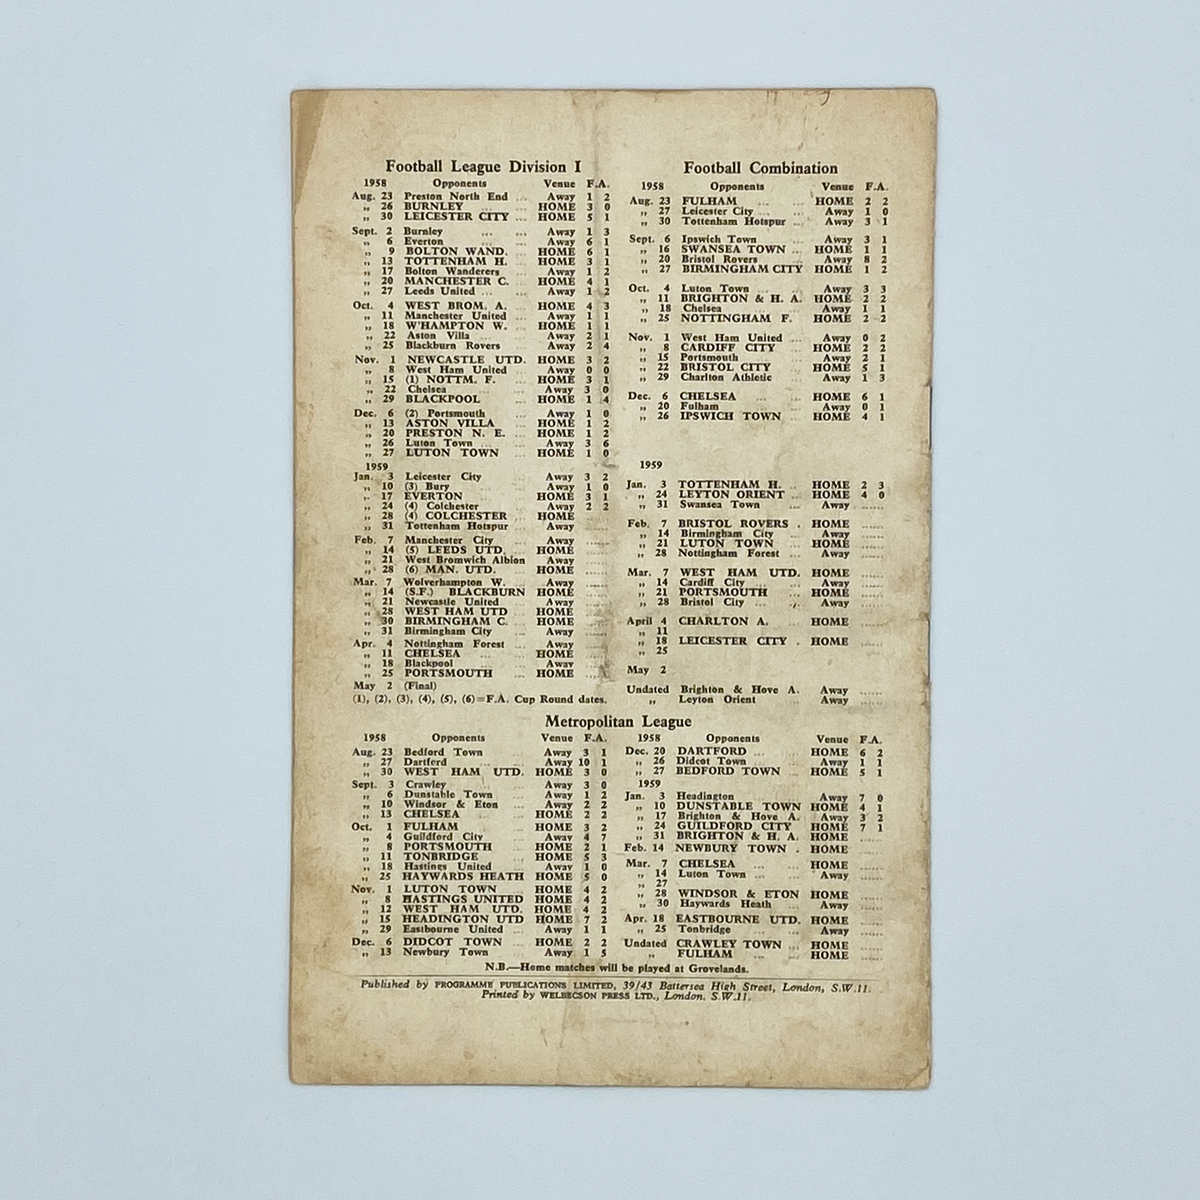 Football League Division I
1958 Opponents Venue F.A.
Aug. 23 Preston North End ... Away 1 2
„ 26 BURNLEY ... HOME 3 0
„ 30 LEICESTER CITY ... HOME 5 1
Sept. 2 Burnley ... ... Away 1 3
„ 6 Everton ... ... Away 6 1
„ 9 BOLTON WAND. ... HOME 6 1
„ 13 TOTTENHAM H. ... HOME 3 1
„ 17 Bolton Wanderers ... Away 1 2
„ 20 MANCHESTER C. ... HOME 4 1
„ 27 Leeds United ... ... Away 1 2
Oct. 4 WEST BROM. A. ... HOME 4 3
„ 11 Manchester United ... Away 1 1
„ 18 W'HAMPTON W. ... HOME 1 1
„ 22 Aston Villa ... ... Away 2 1
„ 25 Blackburn Rovers ... Away 2 4
Nov. 1 NEWCASTLE UTD. HOME 3 2
„ 8 West Ham United ... Away 0 0
„ 15 (1) NOTTM. F. ... HOME 3 1
„ 22 Chelsea ... ... Away 3 0
„ 29 BLACKPOOL ... HOME 1 4
Dec. 6 (2) Portsmouth ... Away 1 0
„ 13 ASTON VILLA ... HOME 1 2
„ 20 PRESTON N. E. ... HOME 1 2
„ 26 Luton Town ... ... Away 3 6
„ 27 LUTON TOWN ... HOME 1 0
1959
Jan. 3 Leicester City ... Away 3 2
„ 10 (3) Bury ... ... Away 1 0
„ 17 EVERTON ... HOME 3 1
„ 24 (4) Colchester ... Away 2 2
„ 28 (4) COLCHESTER ... HOME
„ 31 Tottenham Hotspur ... Away ......
Feb. 7 Manchester City ... Away ......
„ 14 (5) LEEDS UTD. ... HOME ......
„ 21 West Bromwich Albion Away ......
„ 28 (6) MAN. UTD. ... HOME ......
Mar. 7 Wolverhampton W. ... Away ......
„ 14 (S.F.) BLACKBURN HOME ......
„ 21 Newcastle United ... Away ......
„ 28 WEST HAM UTD ... HOME ......
„ 30 BIRMINGHAM C. ... HOME ......
„ 31 Birmingham City ... Away ......
Apr. 4 Nottingham Forest ... Away ......
„ 11 CHELSEA ... HOME ......
„ 18 Blackpool ... ... Away ......
„ 25 PORTSMOUTH ... HOME ......
May 2 (Final)
(1), (2), (3), (4), (5), (6)=F.A. Cup Round dates.
Football Combination
1958 Opponents Venue F.A.
Aug. 23 FULHAM ... ... HOME 2 2
„ 27 Leicester City ... ... Away 1 0
„ 30 Tottenham Hotspur ... Away 3 1
Sept. 6 Ipswich Town ... Away 3 1
„ 16 SWANSEA TOWN ... HOME 1 1
„ 20 Bristol Rovers ... Away 8 2
„ 27 BIRMINGHAM CITY HOME 1 2
Oct. 4 Luton Town ... ... Away 3 3
„ 11 BRIGHTON & H. A. HOME 2 2
„ 18 Chelsea ... ... Away 1 1
„ 25 NOTTINGHAM F. HOME 2 2
Nov. 1 West Ham United ... Away 0 2
„ 8 CARDIFF CITY ... HOME 2 2
„ 15 Portsmouth ... ... Away 2 1
„ 22 BRISTOL CITY ... HOME 5 1
„ 29 Charlton Athletic ... Away 1 3
Dec. 6 CHELSEA ... ... HOME 6 1
„ 20 Fulham ... ... Away 0 1
„ 26 IPSWICH TOWN ... HOME 4 1
1959
Jan. 3 TOTTENHAM H. ... HOME 2 3
„ 24 LEYTON ORIENT ... HOME 4 0
„ 31 Swansea Town ... Away ......
Feb. 7 BRISTOL ROVERS . HOME ......
„ 14 Birmingham City ... Away ......
„ 21 LUTON TOWN ... HOME ......
„ 28 Nottingham Forest ... Away ......
Mar. 7 WEST HAM UTD. HOME ......
„ 14 Cardiff City ... ... Away ......
„ 21 PORTSMOUTH ... HOME ......
„ 28 Bristol City ... ... Away ......
April 4 CHARLTON A. ... HOME ......
„ 11
„ 18 LEICESTER CITY . HOME ......
„ 25
May 2
Undated Brighton & Hove A. Away ......
„ Leyton Orient ... Away ......
Metropolitan League
1958 Opponents Venue F.A.
Aug. 23 Bedford Town ... Away 3 1
„ 27 Dartford ... ... Away 10 1
„ 30 WEST HAM UTD. HOME 3 0
Sept. 3 Crawley ... ... Away 3 0
„ 6 Dunstable Town ... Away 1 2
„ 10 Windsor & Eton ... Away 2 2
„ 13 CHELSEA ... ... HOME 2 2
Oct. 1 FULHAM ... ... HOME 3 2
„ 4 Guildford City ... Away 4 7
„ 8 PORTSMOUTH ... HOME 2 1
„ 11 TONBRIDGE ... HOME 5 3
„ 18 Hastings United ... Away 1 0
„ 25 HAYWARDS HEATH HOME 5 0
Nov. 1 LUTON TOWN ... HOME 4 2
„ 8 HASTINGS UNITED HOME 4 2
„ 12 WEST HAM UTD. HOME 4 2
„ 15 HEADINGTON UTD HOME 7 2
„ 29 Eastbourne United ... Away 1 1
Dec. 6 DIDCOT TOWN ... HOME 2 2
„ 13 Newbury Town ... Away 1 5
1958 Opponents Venue F.A.
Dec. 20 DARTFORD ... ... HOME 6 2
„ 26 Didcot Town ... Away 1 1
„ 27 BEDFORD TOWN ... HOME 5 1
1959
Jan. 3 Headington ... Away 7 0
„ 10 DUNSTABLE TOWN HOME 4 1
„ 17 Brighton & Hove A. Away 3 2
„ 24 GUILDFORD CITY HOME 7 1
„ 31 BRIGHTON & H. A. HOME ......
Feb. 14 NEWBURY TOWN . HOME ......
Mar. 7 CHELSEA ... ... HOME ......
„ 14 Luton Town ... ... Away ......
„ 27
„ 28 WINDSOR & ETON HOME ......
„ 30 Haywards Heath ... Away ......
Apr. 18 EASTBOURNE UTD. HOME ......
„ 25 Tonbridge ... ... Away ......
Undated CRAWLEY TOWN ... HOME ......
„ FULHAM ... ... HOME ......
N.B.—Home matches will be played at Grovelands.
Published by PROGRAMME PUBLICATIONS LIMITED, 39/43 Battersea High Street, London, S.W.11.
Printed by WELBECSON PRESS LTD., London, S.W.11.